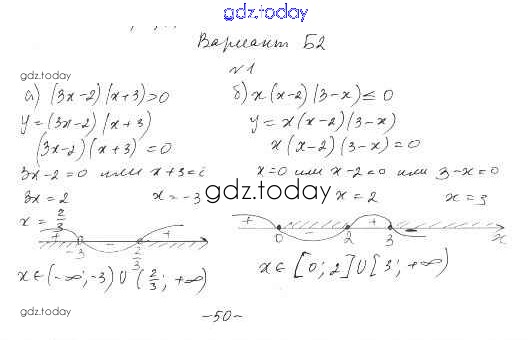 gdz.today
Вариант Б2
№1
gdz.today
а) (3x-2)(x+3)>0
y=(3x-2)(x+3)
(3x-2)(x+3)=0
3x-2=0 или x+3=0
3x=2 x=-3
x=2/3
+ - +
-3 2/3
x∈(-∞;-3)∪(2/3;+∞)
б) x(x-2)(3-x)≤0
y=x(x-2)(3-x)
x(x-2)(3-x)=0
x=0 или x-2=0 или 3-x=0
x=2 x=3
gdz.today
+ - + -
0 2 3 x
x∈[0;2]∪[3;+∞)
gdz.today
-50-